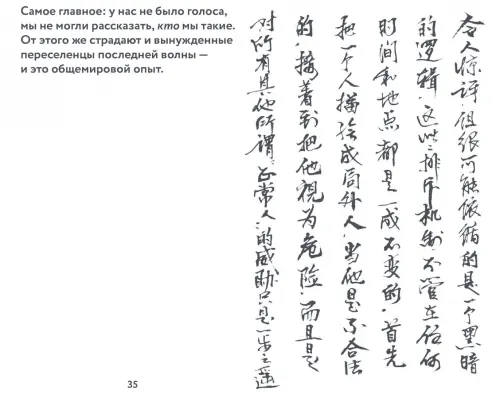 Самое главное: у нас не было голоса,
мы не могли рассказать, кто мы такие.
От этого же страдают и вынужденные
переселенцы последней войны —
и это общемировой опыт.
令人惊讶,但很可能依循的是一个黑暗
的逻辑,这些排斥机制不管在任何
时间和地点都是一成不变的,首先
把一个人描绘成局外人,当他是不合法
的,接着到把他视为危险,而且是
对所有其他所谓“正常人”的威胁只是一步之遥
35